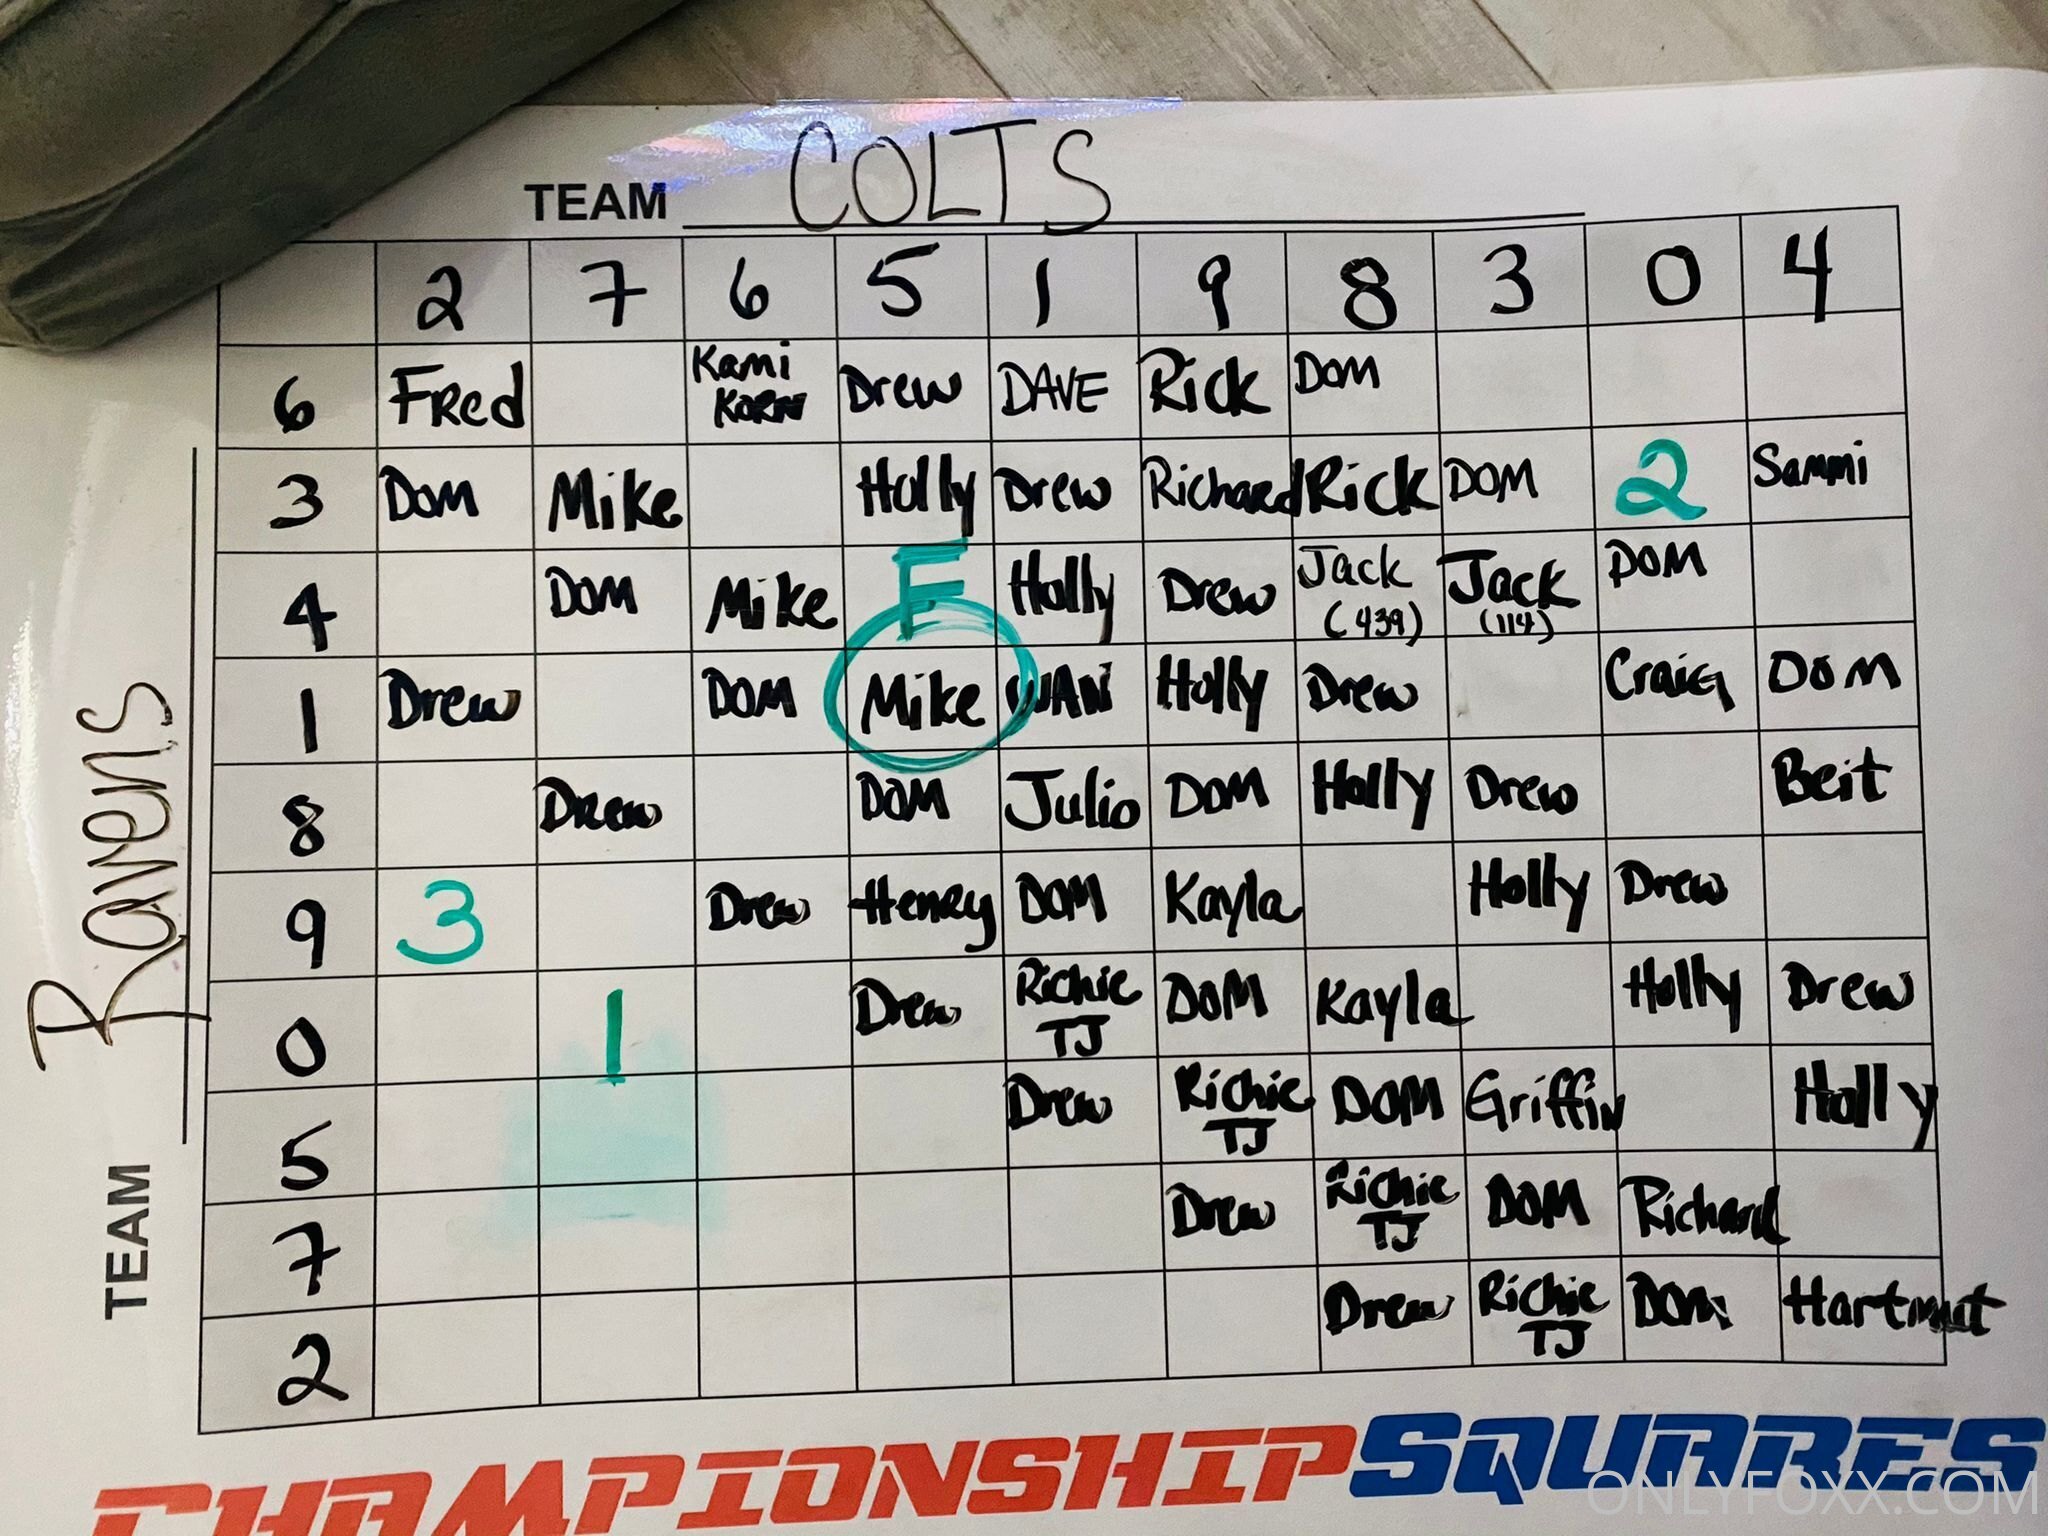 TEAM COLTS
2 7 6 5 1 9 8 3 0 4
6 Fred Kami KORN Drew DAVE Rick DOM
3 DOM Mike Holly Drew Richard Rick DOM 2 Sammi
4 DOM Mike F Holly Drew Jack (439) Jack (114) DOM
1 Drew DOM Mike WAN Holly Drew Craig DOM
8 Drew DOM Julio DOM Holly Drew Beit
9 3 Drew Henry DOM Kayla Holly Drew
0 1 Drew Richie TJ DOM Kayla Holly Drew
5 Drew Richie TJ DOM Griffin Holly
7 Drew Richie TJ DOM Richard
2 Drew Richie TJ DOM Hartmut
TEAM Ravens
CHAMPIONSHIP SQUARES
ONLYFOXX.COM